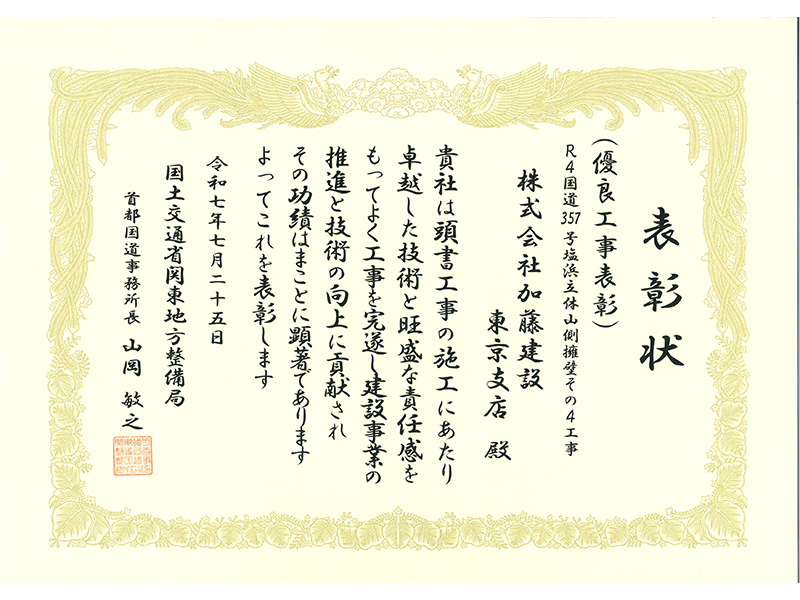 表彰状
（優良工事表彰）
R4国道357号塩浜立体山側擁壁その4工事
株式会社加藤建設
東京支店 殿
貴社は頭書工事の施工にあたり
卓越した技術と旺盛な責任感を
もってよく工事を完遂し建設事業の
推進と技術の向上に貢献され
その功績はまことに顕著であります
よってこれを表彰します
令和七年七月二十五日
国土交通省関東地方整備局
首都国道事務所長 山岡 敏之